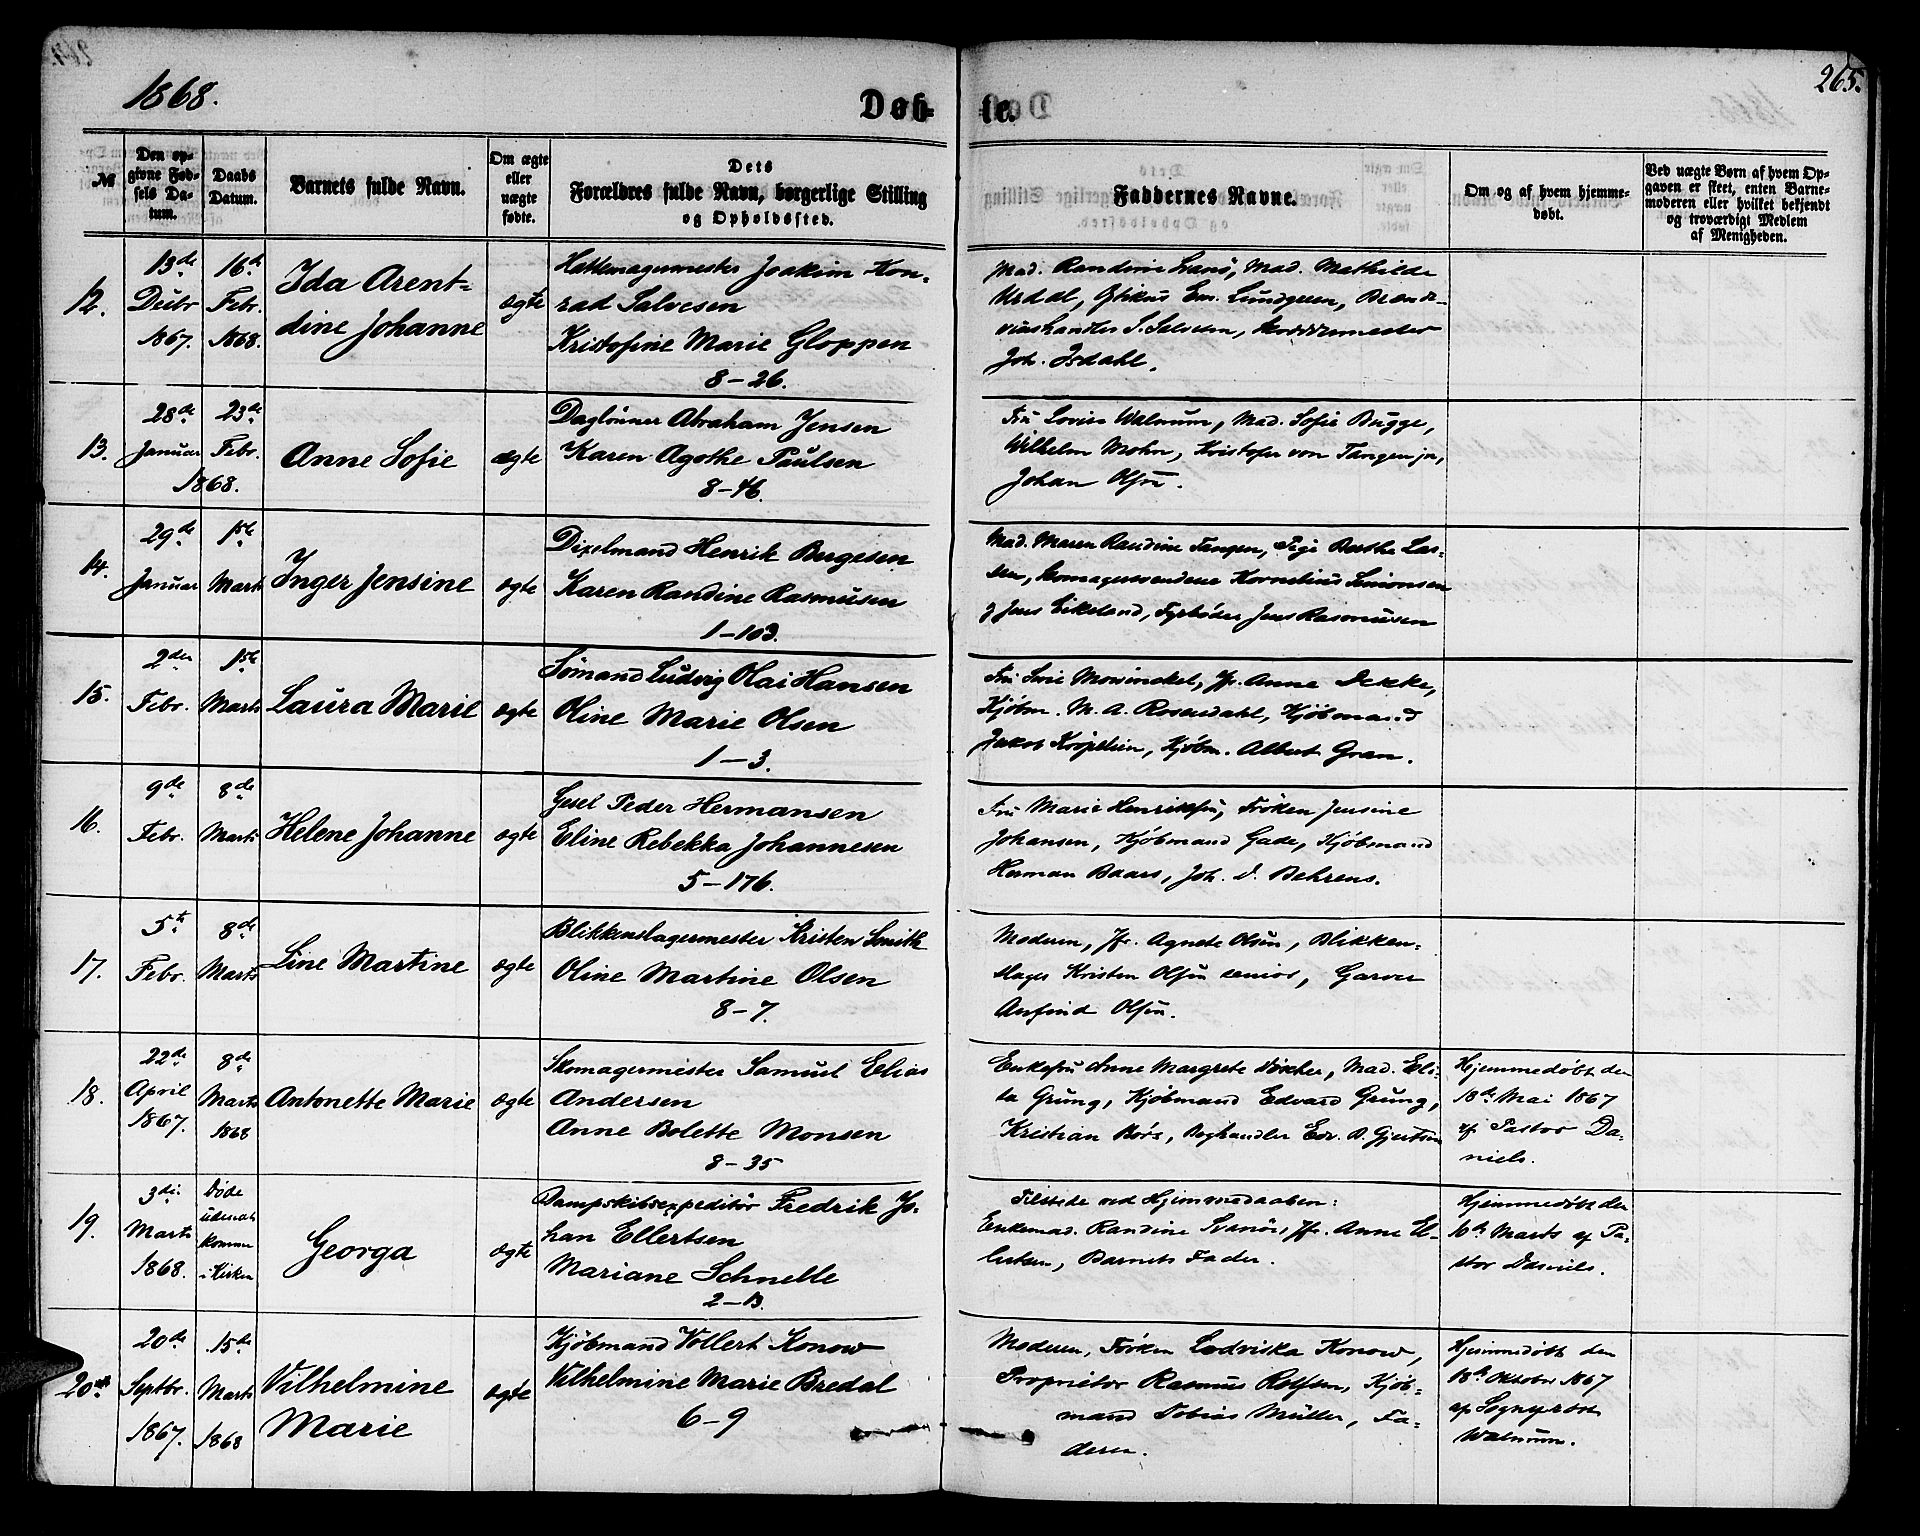 1868.
Døb-
te.
265.
№
Den op-
givne Fød-
sels Da-
tum.
Daabs
Datum.
Barnets fulde Navn.
Om ægte
eller
uægte
fødte.
Dets
Forældres fulde Navn, borgerlige Stilling
og Opholdssted.
Faddernes Navne.
Om og af hvem hjemme-
døbt.
Ved uægte Børn af hvem Op-
gaven er skeet, enten Barne-
moderen eller hvilket bekjendt
og troværdigt Medlem
af Menigheden.
12.
13de
Decbr
1867.
16de
Febr.
1868.
Ida Arent-
dine Johanne
ægte
Hattemagermester Joakim Kon-
rad Salvesen
Kristofine Marie Gloppen
8-26.
Mad. Randine Svanø, Mad. Mathilde
Urdal, Em. Lundgreen, Brænde-
viinshandler S. Salvesen,
Joh. Isdahl.
13.
28de
Januar
23de
Febr.
1868.
Anne Sofie
ægte
Daglønner Abraham Jensen
Karen Agathe Paulsen
8-46.
Fru Lovise Walnum, Mad. Sofie Bugge,
Wilhelm Mohn, Kristofer von Tangen jr,
Johan Olsen.
14.
29de
Januar
1ste
Marts
Inger Jensine
ægte
Dixelmand Henrik Børgesen
Karen Randine Rasmusen
1-103.
Mad. Maren Randine Tangen, Pige Berthe Las-
sen, Skomagersvendene Kornelius Simonsen
og Jens Eikeland, Fyrbøder Jens Rasmusen
15.
2den
Febr.
1ste
Marts
Laura Marie
ægte
Sømand Ludvig Olai Hansen
Oline Marie Olsen
1-3.
Fru Mowinckel, Jfr. Anne Dekke,
Kjøbm. M. A. Rosendahl, Kjøbmand
Jakob Kjøbm. Albert Gran.
16.
9de
Febr.
8de
Marts
Helene Johanne
ægte
Gesel Peder Hermansen
Eline Rebekka Johannesen
5-176.
Fru Marie Henriksen, Frøken Jensine
Johansen, Kjøbmand Gade, Kjøbmand
Herman Baars, Joh. D. Behrens.
17.
5te
Febr.
8de
Marts
Line Martine
ægte
Blikkenslagermester Kristen Smith
Oline Martine Olsen
8-7.
Moderen, Jfr. Agnete Olsen, Blikken-
slager Kristen Olsen senior, Garver
Anfind Olsen.
18.
22de
April
1867.
8de
Marts
1868
Antonette Marie
ægte
Skomagermester Samuel Elias
Andersen
Anne Bolette Monsen
8-35
Enkefru Anne Margrete Mad. Eli-
sa Grung, Kjøbmand Edvard Grung,
Kristian Børs, Boghandler Edv. B. Gjertsen
Hjemmedøbt den
18de Mai 1867
af Pastor Da-
niels.
19.
3die
Marts
1868.
Døde
uden at
komme
i Kirken
Georga
ægte
Dampskibsexpeditør Fredrik Jo-
han Ellertsen
Mariane Schnelle
2-13.
Tilstede ved Hjemmedaaben:
Enkemad. Randine Svanøe, Jfr. Anne El-
lertsen, Barnets Fader.
Hjemmedøbt den
10de Marts af Pa-
stor Daniels.
20.
20de
Septbr.
1867.
15de
Marts
1868
Vilhelmine
Marie
ægte
Kjøbmand Vollert Konow
Vilhelmine Marie Bredal
6-9
Moderen, Frøken Lodviska Konow,
Proprietær Rasmus Rolfsen, Kjøb-
mand Tobias Müller, Fa-
deren.
Hjemmedøbt den
18de Oktober 1867
af Sogneprest
Walnum.